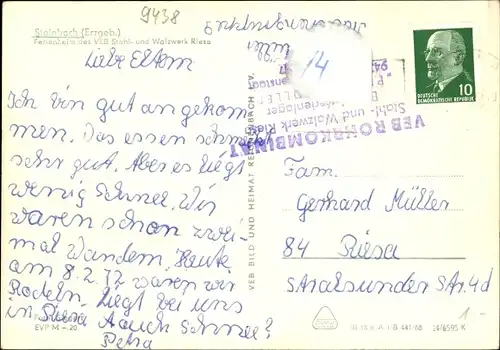 9438
Steinbach (Erzgeb.)
Ferienheim des VEB Stahl- und Walzwerk Riesa
Liebe Eltern
Ich bin gut angekom
men. Das essen schmegt
sehr gut. Aber es liegt
wenig Schnee. Wir
waren schon zwei-
mal Wandern. Heute
am 8.2.72 waren wir
Rodeln. Liegt bei uns
in Riesa auch Schnee?
Petra
EVP M –.20
VEB BILD UND HEIMAT REICHENBACH I. V.
Müller
14
VEB ROHRKOMBINAT
Stahl- und Walzwerk Riesa
DEUTSCHE
DEMOKRATISCHE REPUBLIK
10
Fam.
Gerhard Müller
84 Riesa
Stralsunder Str. 4d
441/68
1-